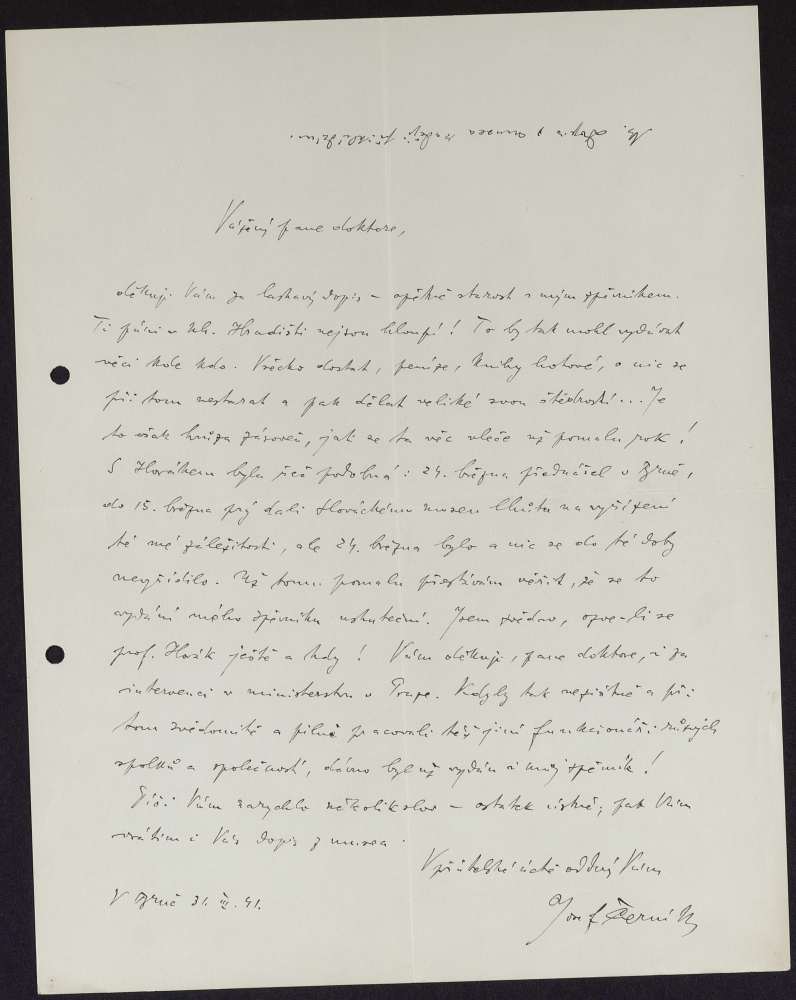 N. Dopis z musea raději přikládám.
Vážený pane doktore,
děkuji Vám za laskavý dopis – opětně starost s mým zpěvníkem.
Ti páni v Uh. Hradišti nejsou hloupí! To by tak mohl vydávat
věci kde kdo. Všecko dostat, peníze, knihy hotové, o nic se
při tom nestarat a pak dělat veliké svou štědrostí... Je
to však hrůza zároveň, jak se ta věc vleče už pomalu rok!
S Horákem byla řeč podobná: 24. března přednášel v Brně,
do 15. března prý dali Slováckému museu lhůtu na vyřízení
té mé záležitosti, ale 24. března bylo a nic se do té doby
nevyřídilo. Už tomu pomalu přestávám věřit, že se to
vydání mého zpěvníku uskuteční. Jsem zvědav, ozve-li se
prof. Horák ještě a kdy! Vám děkuji, pane doktore, i za
intervenci v ministerstvu v Praze. Kdyby tak nezištně a při
tom svědomitě a pilně pracovali též jiní funkcionáři různých
spolků a společností, dávno byl už vydán i můj zpěvník!
Píši Vám narychlo několik slov – ostatek ústně, pak Vám
vrátím i Váš dopis z musea.
V přátelské úctě oddaný Vám
V Brně 31. III. 41.
Josef Černík